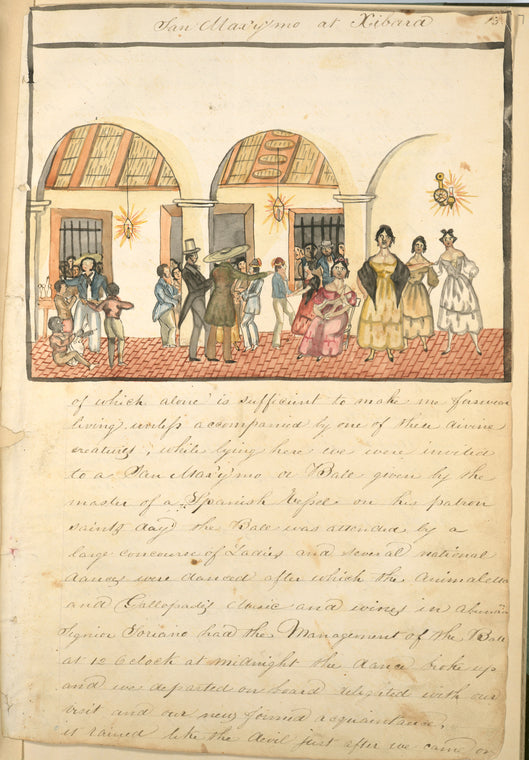 San Maxymo at Xibara
of which alone is sufficient to make me forswear
living unless accompanied by one of these divine
creatures, while lying here we were invited
to a San Maxymo or Bale given by the
master of a Spanish Vessel on his patron
saints day the Bale was attended by a
large concourse of Ladies and several national
dances were danced after which the
and Gallopadis classic and wines in
Signior Soriano had the Management of the Bale
at 12 Oclock at midnight the dance broke up
and we departed on board delighted with our
visit and our new formed acquaintance,
it rained like the devil just after we came on